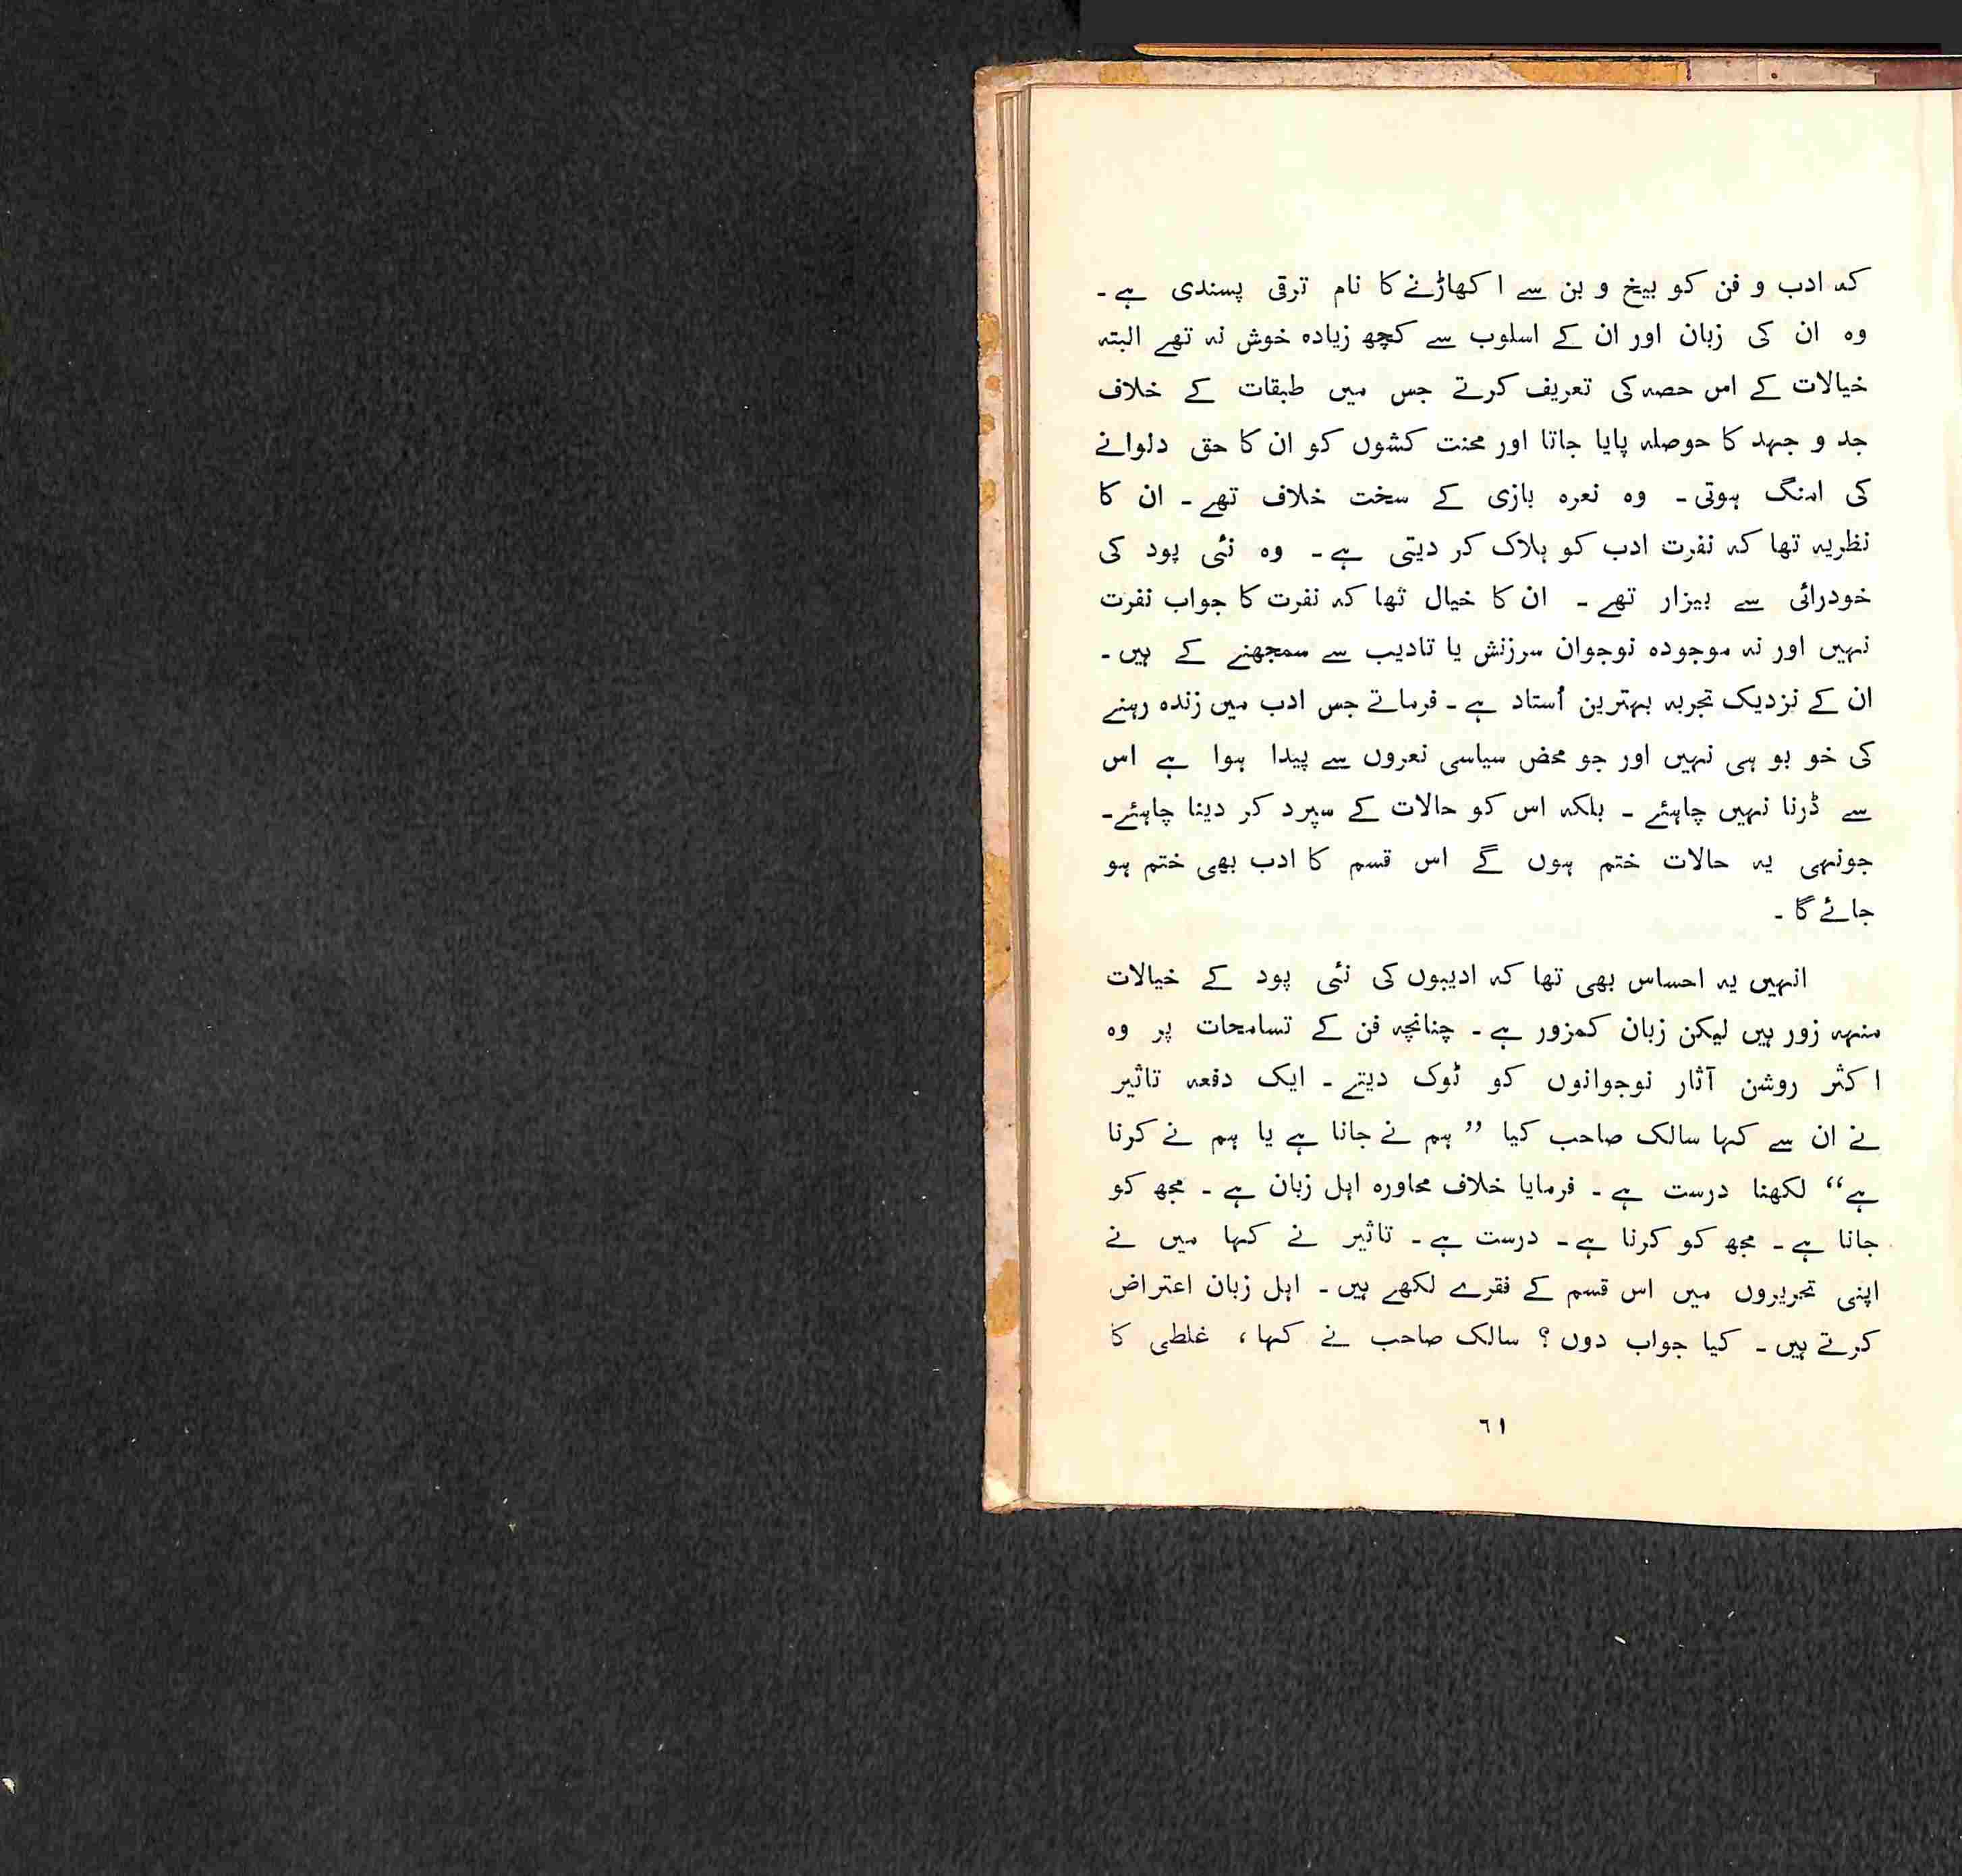 کہ ادب و فن کو بیخ و بن سے اکھاڑنے کا نام ترقی پسندی ہے۔
وہ ان کی زبان اور ان کے اسلوب سے کچھ زیادہ خوش نہ تھے البتہ
خیالات کے اس حصہ کی تعریف کرتے جس میں طبقات کے خلاف
جد و جہد کا حوصلہ پایا جاتا اور محنت کشوں کو ان کا حق دلوانے
کی امنگ ہوتی۔ وہ نعرہ بازی کے سخت خلاف تھے۔ ان کا
نظریہ تھا کہ نفرت ادب کو ہلاک کر دیتی ہے۔ وہ نئی پود کی
خودرائی سے بیزار تھے۔ ان کا خیال تھا کہ نفرت کا جواب نفرت
نہیں اور نہ موجودہ نوجوان سرزنش یا تادیب سے سمجھنے کے ہیں۔
ان کے نزدیک تجربہ بہترین اُستاد ہے۔ فرماتے جس ادب میں زندہ رہنے
کی خو بو ہی نہیں اور جو محض سیاسی نعروں سے پیدا ہوا ہے اس
سے ڈرنا نہیں چاہئے۔ بلکہ اس کو حالات کے سپرد کر دینا چاہئے۔
جونہی یہ حالات ختم ہوں گے اس قسم کا ادب بھی ختم ہو
جائے گا۔
انہیں یہ احساس بھی تھا کہ ادیبوں کی نئی پود کے خیالات
منہہ زور ہیں لیکن زبان کمزور ہے۔ چنانچہ فن کے تسامحات پر وہ
اکثر روشن آثار نوجوانوں کو ٹوک دیتے۔ ایک دفعہ تاثیر
نے ان سے کہا سالک صاحب کیا ”ہم نے جانا ہے یا ہم نے کرنا
ہے“ لکھنا درست ہے۔ فرمایا خلاف محاورہ اہل زبان ہے۔ مجھ کو
جانا ہے۔ مجھ کو کرنا ہے۔ درست ہے۔ تاثیر نے کہا میں نے
اپنی تحریروں میں اس قسم کے فقرے لکھے ہیں۔ اہل زبان اعتراض
کرتے ہیں۔ کیا جواب دوں؟ سالک صاحب نے کہا، غلطی کا
٦١